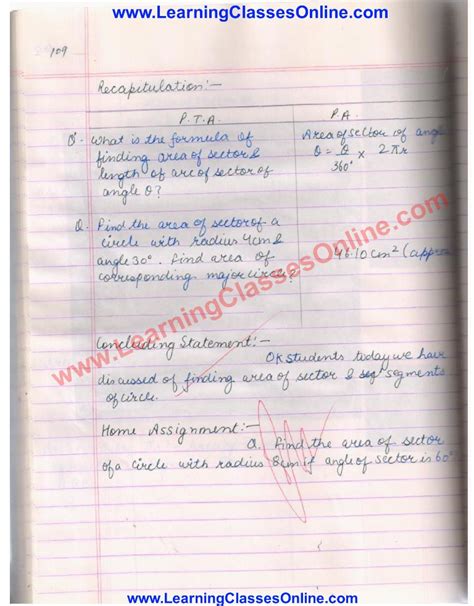 www.LearningClassesOnline.com
109
Recapitulation:-
P.T.A. P.A.
Q. What is the formula of
finding area of sector &
length of arc of sector of
angle θ?
Area of sector of angle
θ = θ/360° × 2πr
Q. Find the area of sector of a
circle with radius 4cm &
angle 30°. Find area of
corresponding major circle?
46.10cm² (approx
Concluding Statement:-
OK students today we have
discussed of finding area of sector & segments
of circle.
Home Assignment:-
Q. Find the area of sector
of a circle with radius 8cm if angle of sector is 60°
www.LearningClassesOnline.com
www.LearningClassesOnline.com